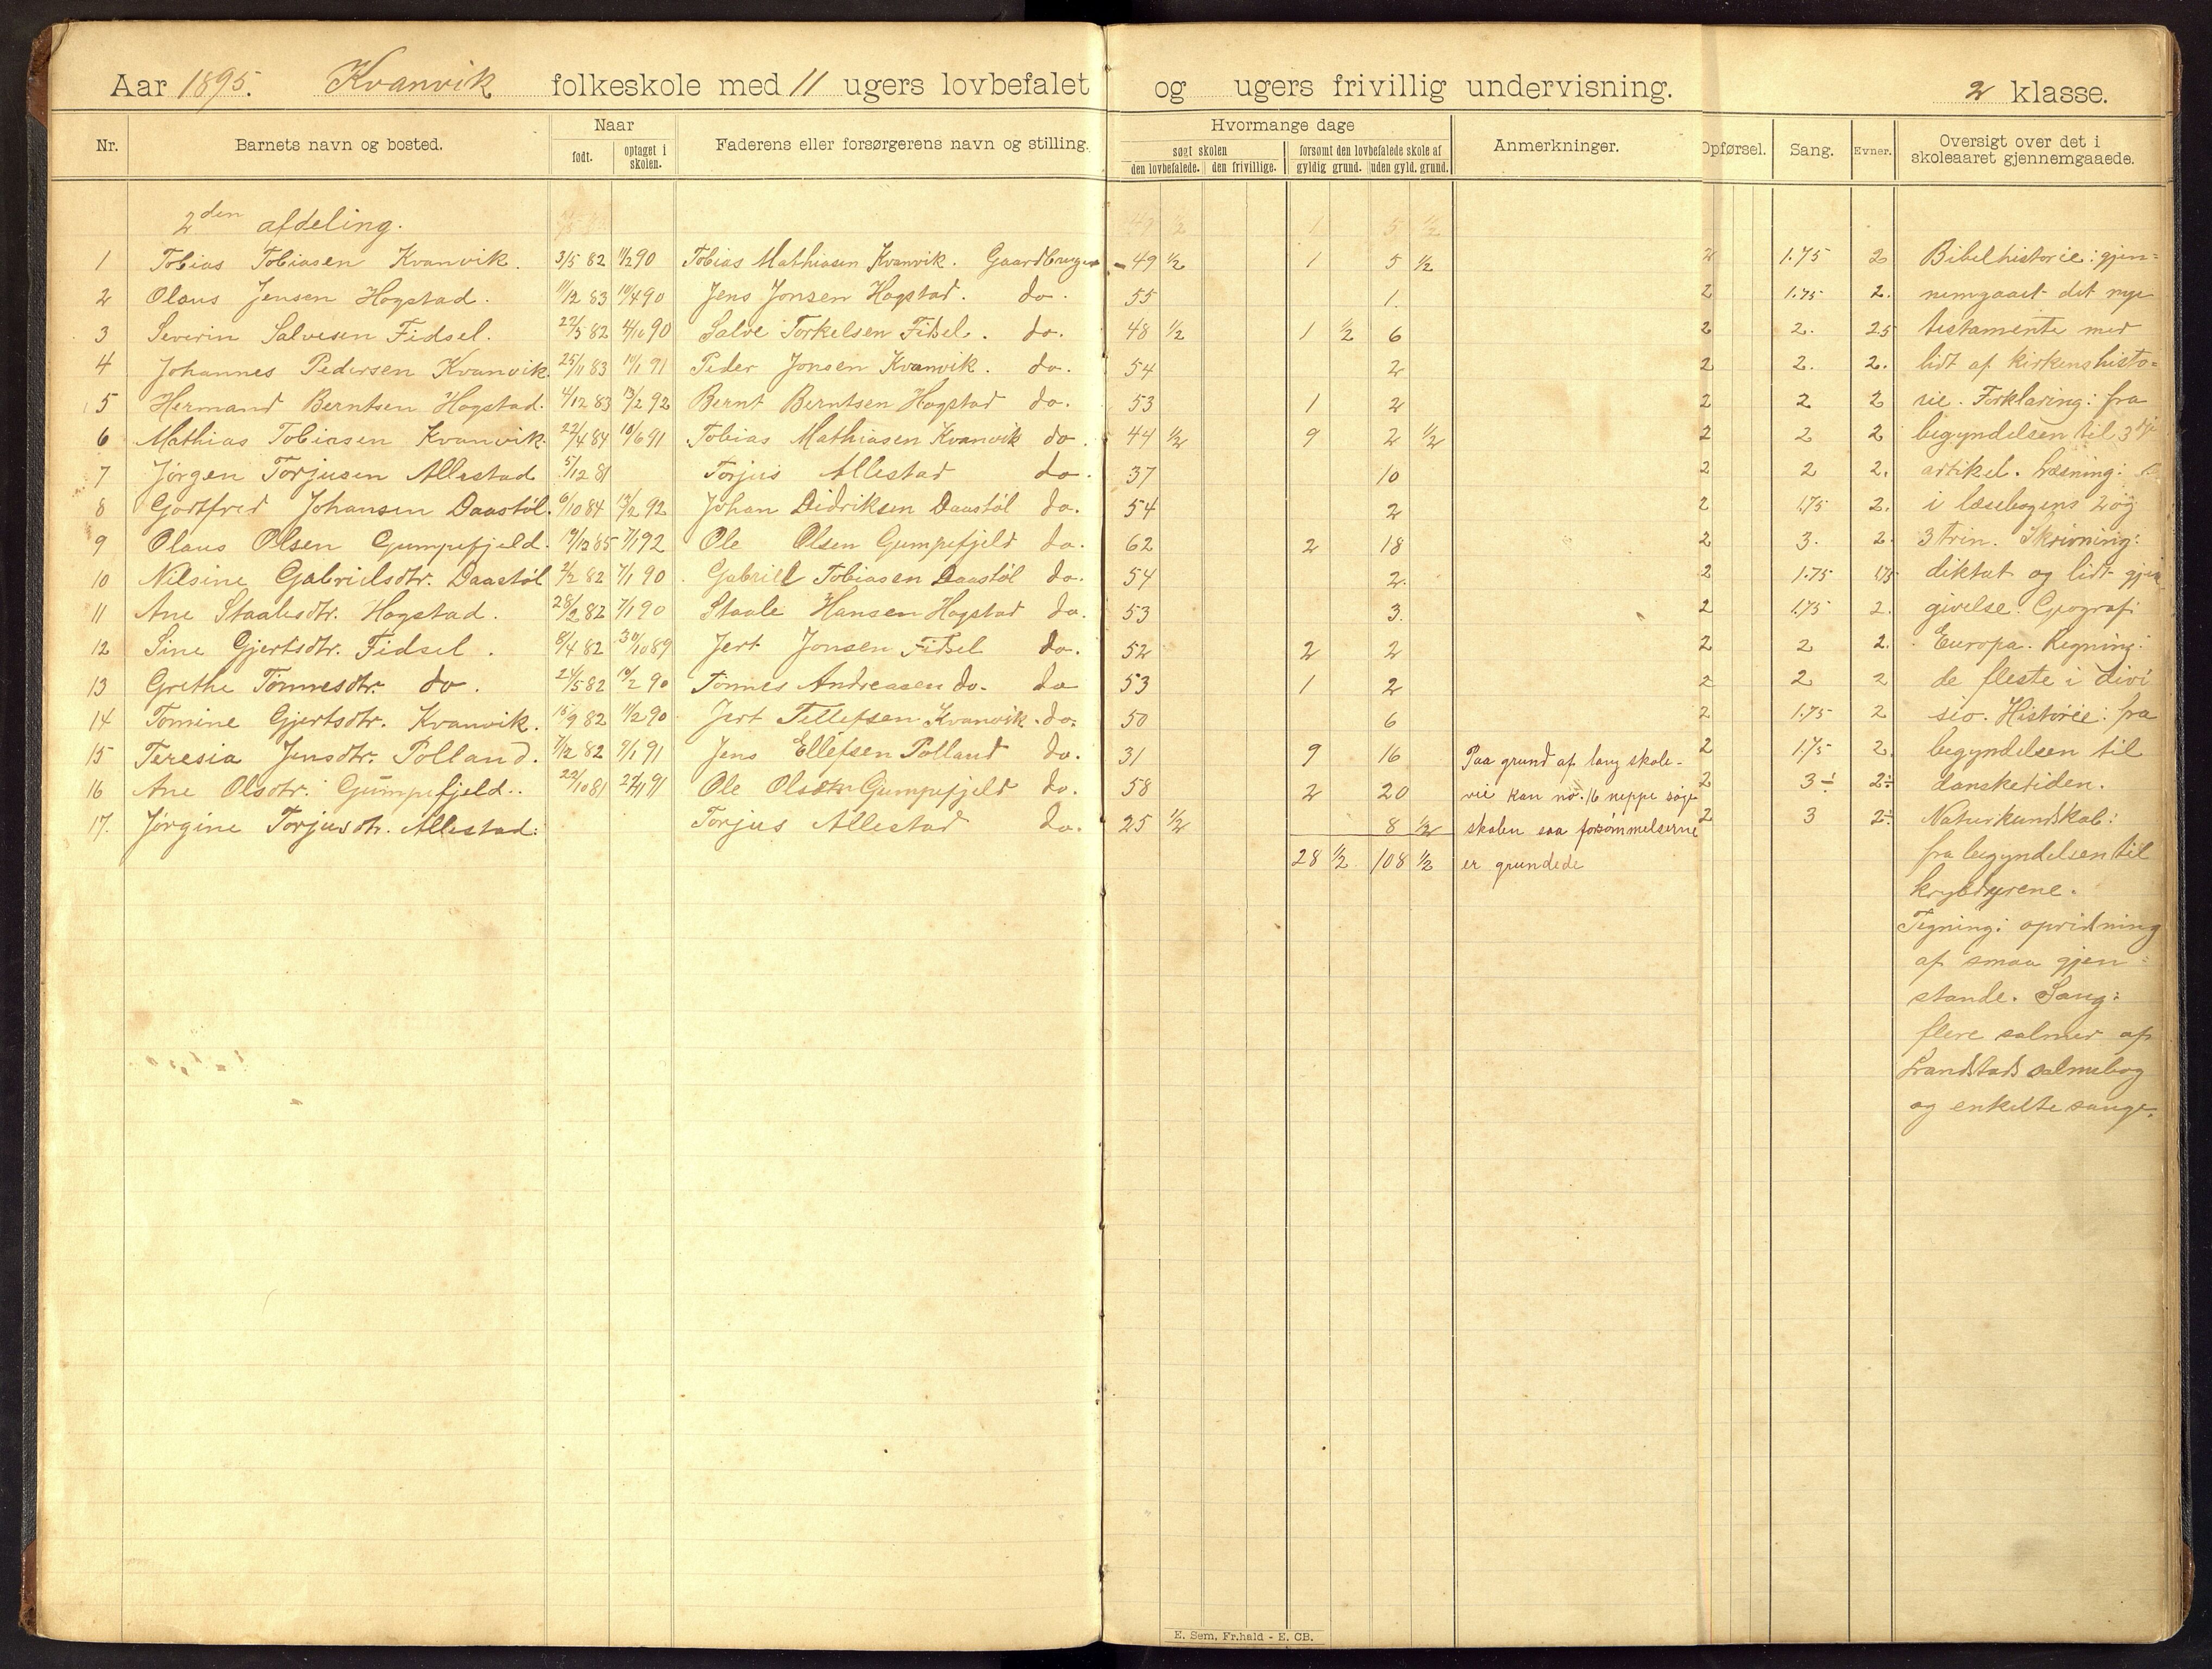 Aar 1895. Kvanvik folkeskole med 11 ugers lovbefalet og ugers frivillig undervisning. 2 klasse.
Nr. Barnets navn og bosted. Naar født. optaget i skolen. Faderens eller forsørgerens navn og stilling. Hvormange dage søgt skolen den lovbefalede. den frivillige. forsømt den lovbefalede skole af gyldig grund. uden gyld. grund. Anmerkninger. Opførsel. Sang. Evner. Oversigt over det i skoleaaret gjennemgaaede.
2den afdeling.
1 Tobias Tobiasen Kvanvik. 3/5 82 11/2 90 Tobias Mathiasen Kvanvik. Gaardbruger 49 1/2 1 5 1/2 2 1.75 2 Bibelhistorie: gjen=
2 Olaus Jensen Hogstad. 11/12 83 10/4 90 Jens Jonsen Hogstad. do. 55 1. 2 1.75 2. nemgaaet det nye
3 Severin Salvesen Fidsel. 22/5 82 4/10 90 Salve Torkelsen Fidsel. do. 48 1/2 1 1/2 6 2 2. 2.5 testamente med
4 Johannes Pedersen Kvanvik. 25/11 83 10/1 91 Peder Jonsen Kvanvik. do. 54 2 2 2. 2. lidt af kirkens histo=
5 Hermand Berntsen Hogstad. 4/12 83 13/2 92 Bernt Berntsen Hogstad do. 53 1 2 2 2 2 rie. Forklaring: fra
6 Mathias Tobiasen Kvanvik. 22/4 84 10/6 91 Tobias Mathiasen Kvanvik do. 44 1/2 9 2 1/2 2 2 2 begyndelsen til 3dje
7 Jørgen Torjusen Allestad 5/12 81 Torjus Allestad do. 37 10 2 2 2. artikel. Læsning:
8 Godtfred Johansen Daastöl. 6/10 84 13/2 92 Johan Didriksen Daastöl do. 54 2 2 1.75 2. i læsebogens 2 og
9 Olaus Olsen Gumpefjeld. 19/12 85 7/1 92 Ole Olsen Gumpefjeld do. 62 2 18 2 3. 2. 3 trin. Skrivning:
10 Nilsine Gabrielsdtr. Daastöl 2/2 82 7/1 90 Gabriel Tobiasen Daastöl do. 54 2. 2 1.75 1.75 diktat og lidt gjen
11 Ane Staalesdtr. Hogstad. 28/2 82 7/1 90 Staale Hansen Hogstad do. 53 3. 2 1.75 2. givelse. Geografi
12 Sine Gjertsdtr. Fidsel. 8/4 82 30/10 89 Jert Jonsen Fidsel do. 52 2 2 2 2 2. Europa. Regning:
13 Grethe Tönnesdtr. do. 24/5 82 10/2 90 Tönnes Andreasen do. do 53 1 2 2 2 2 de fleste i divi
14 Tomine Gjertsdtr. Kvanvik. 15/9 82 11/2 90 Jert Tellefsen Kvanvik. do. 50 6 2 1.75 2 sio. Historie: fra
15 Teresia Jensdtr. Polland. 7/12 82 9/1 91 Jens Ellefsen Polland do. 31 9 16 Paa grund af lang skole- 2 1.75 2. begyndelsen til
16 Ane Olsdtr. Gumpefjeld. 22/10 81 27/11 91 Ole Olsen Gumpefjeld do. 58 2 20 vei kan no. 16 neppe søge 2 3÷ 2÷ dansketiden.
17. Jørgine Torjusdtr. Allestad: Torjus Allestad do. 25 1/2 8 1/2 skolen saa forsömmelserne 2 3 2÷ Naturkundskab:
28 1/2 108 1/2 er grundede fra begyndelsen til
krybdyrene.
Tegning: opridsning
af smaa gjen=
stande. Sang:
flere salmer af
Landstads salmebog
og enkelte sange.
E. Sem, Fr.hald - E. CB.